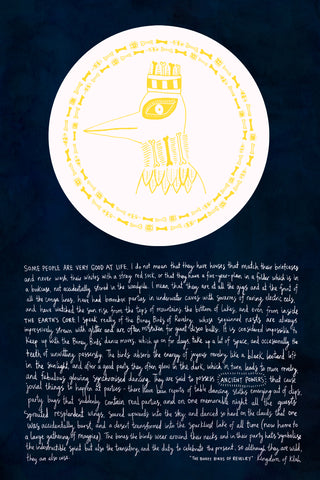 SOME PEOPLE ARE VERY GOOD AT LIFE. I do not mean that they have houses that match their briefcases
and never wash their whites with a stray red sock, or that they have a five-year-plan, in a folder which is in
a bookcase, not accidentally stored in the woodpile. I mean that they are at all the gigs and at the front of
all the conga lines, have had bamboo parties in underwater caves with swarms of raving electric eels,
and have watched the sun rise from the tops of mountains, the bottom of lakes, and even from inside
THE EARTH'S CORE. I speak really of the Boney Birds of Revelry, whose sequinned nests are always
impressively strewn with glitter and are often mistaken for giant disco balls. It is considered impossible to
keep up with the Boney Birds' dance moves, which go on for days, take up a lot of space, and occasionally the
teeth of unwitting passersby. The birds absorb the energy of joyous revelry like a black leotard left
in the sunlight, and after a good party they often glow in the dark, which in turn leads to more revelry
and fabulous, glowing synchronised dancing. They are said to possess ANCIENT POWERS that cause
jovial things to happen at parties - there have been reports of table dancing, sloths emerging out of clefs,
party bags that suddenly contain real parties, and on one memorable night all the guests
sprouted resplendent wings, soared upwards into the sky and danced so hard on the clouds that one
was accidentally burst, and a desert transformed into the Sparkliest Lake of all time (now home to
a large gathering of magpies). The bones the birds wear around their necks and in their party hats symbolise
the indestructible spirit but also the transitory, and the duty to celebrate the present, so although they are wild,
they are also wise. "THE BONEY BIRDS OF REVELRY" Kingdom of